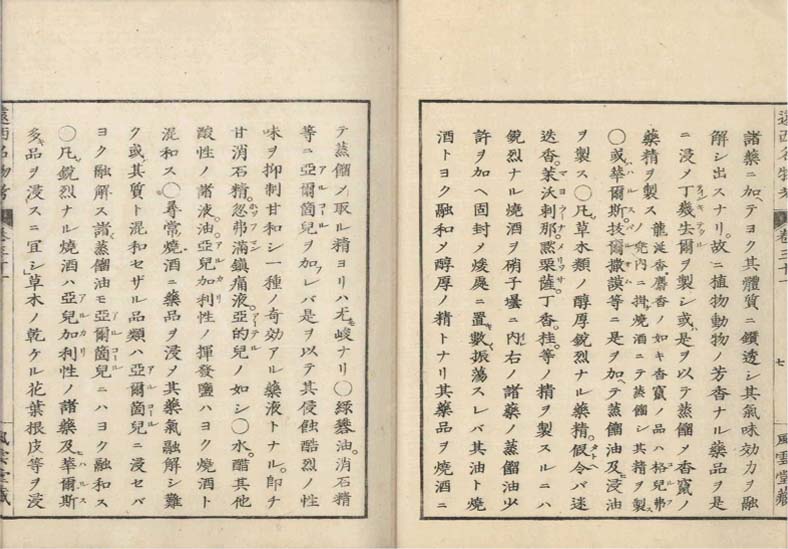 遠西名物考
卷三十一
七
風雲堂藏
諸藥ニ加ヘテヨク其體質ニ鑽透シ其氣味効力ヲ融
解シ出スナリ。故ニ植物動物ノ芳香ナル藥品ヲ是
ニ浸メ丁幾生爾ヲ製シ或ハ是ヲ以テ蒸餾メ香竄ノ
藥精ヲ製ス 龍涎香麝香ノ如キ香竄ノ品ハ格兒弗
ノ兜内ニ掛ケ燒酒ニテ蒸餾シ其精ヲ製ス
〇或ハ華爾斯。拔爾撒謨等ニ是ヲ加ヘテ蒸餾油及浸油
ヲ製ス〇凡草木類ノ醇厚銳烈ナル藥精。假令バ迷
迭香。茉沃剌那。黙栗薩。丁香。桂。等ノ精ヲ製スルニハ
銳烈ナル燒酒ヲ硝子壜ニ内レ右ノ諸藥ノ蒸餾油少
許ヲ加ヘ固封メ煖處ニ置キ數振蕩スレバ其油ト燒
酒トヨク融和メ醇厚ノ精トナリ其藥品ヲ燒酒ニ
テ蒸餾メ取ル精ヨリハ尤峻ナリ〇綠礬油。消石精
等ニ亞爾箇兒ヲ加フレバ是ヲ以テ其侵蝕酷烈ノ性
味ヲ抑制甘和シ一種ノ奇効アル藥液トナル。卽チ
甘消石精。忽弗滿鎭痛液。亞的兒ノ如シ〇水。醋其他
酸性ノ諸液。油。亞兒加利性ノ揮發鹽ハヨク燒酒ト
混和ス〇尋常燒酒ニ藥品ヲ浸メ其藥氣融解シ難
ク或ハ其質ト混和セザル品類ハ亞爾箇兒ニ浸セバ
ヨク融解ス諸蒸餾油モ亞爾箇兒ニハヨク融和ス
〇凡銳烈ナル燒酒ハ亞兒加利性ノ諸藥及華爾斯
多キ品ヲ浸スニ宜シ草木ノ乾ケル花葉根皮等ヲ浸
遠西名物考
卷三十一
風雲堂藏